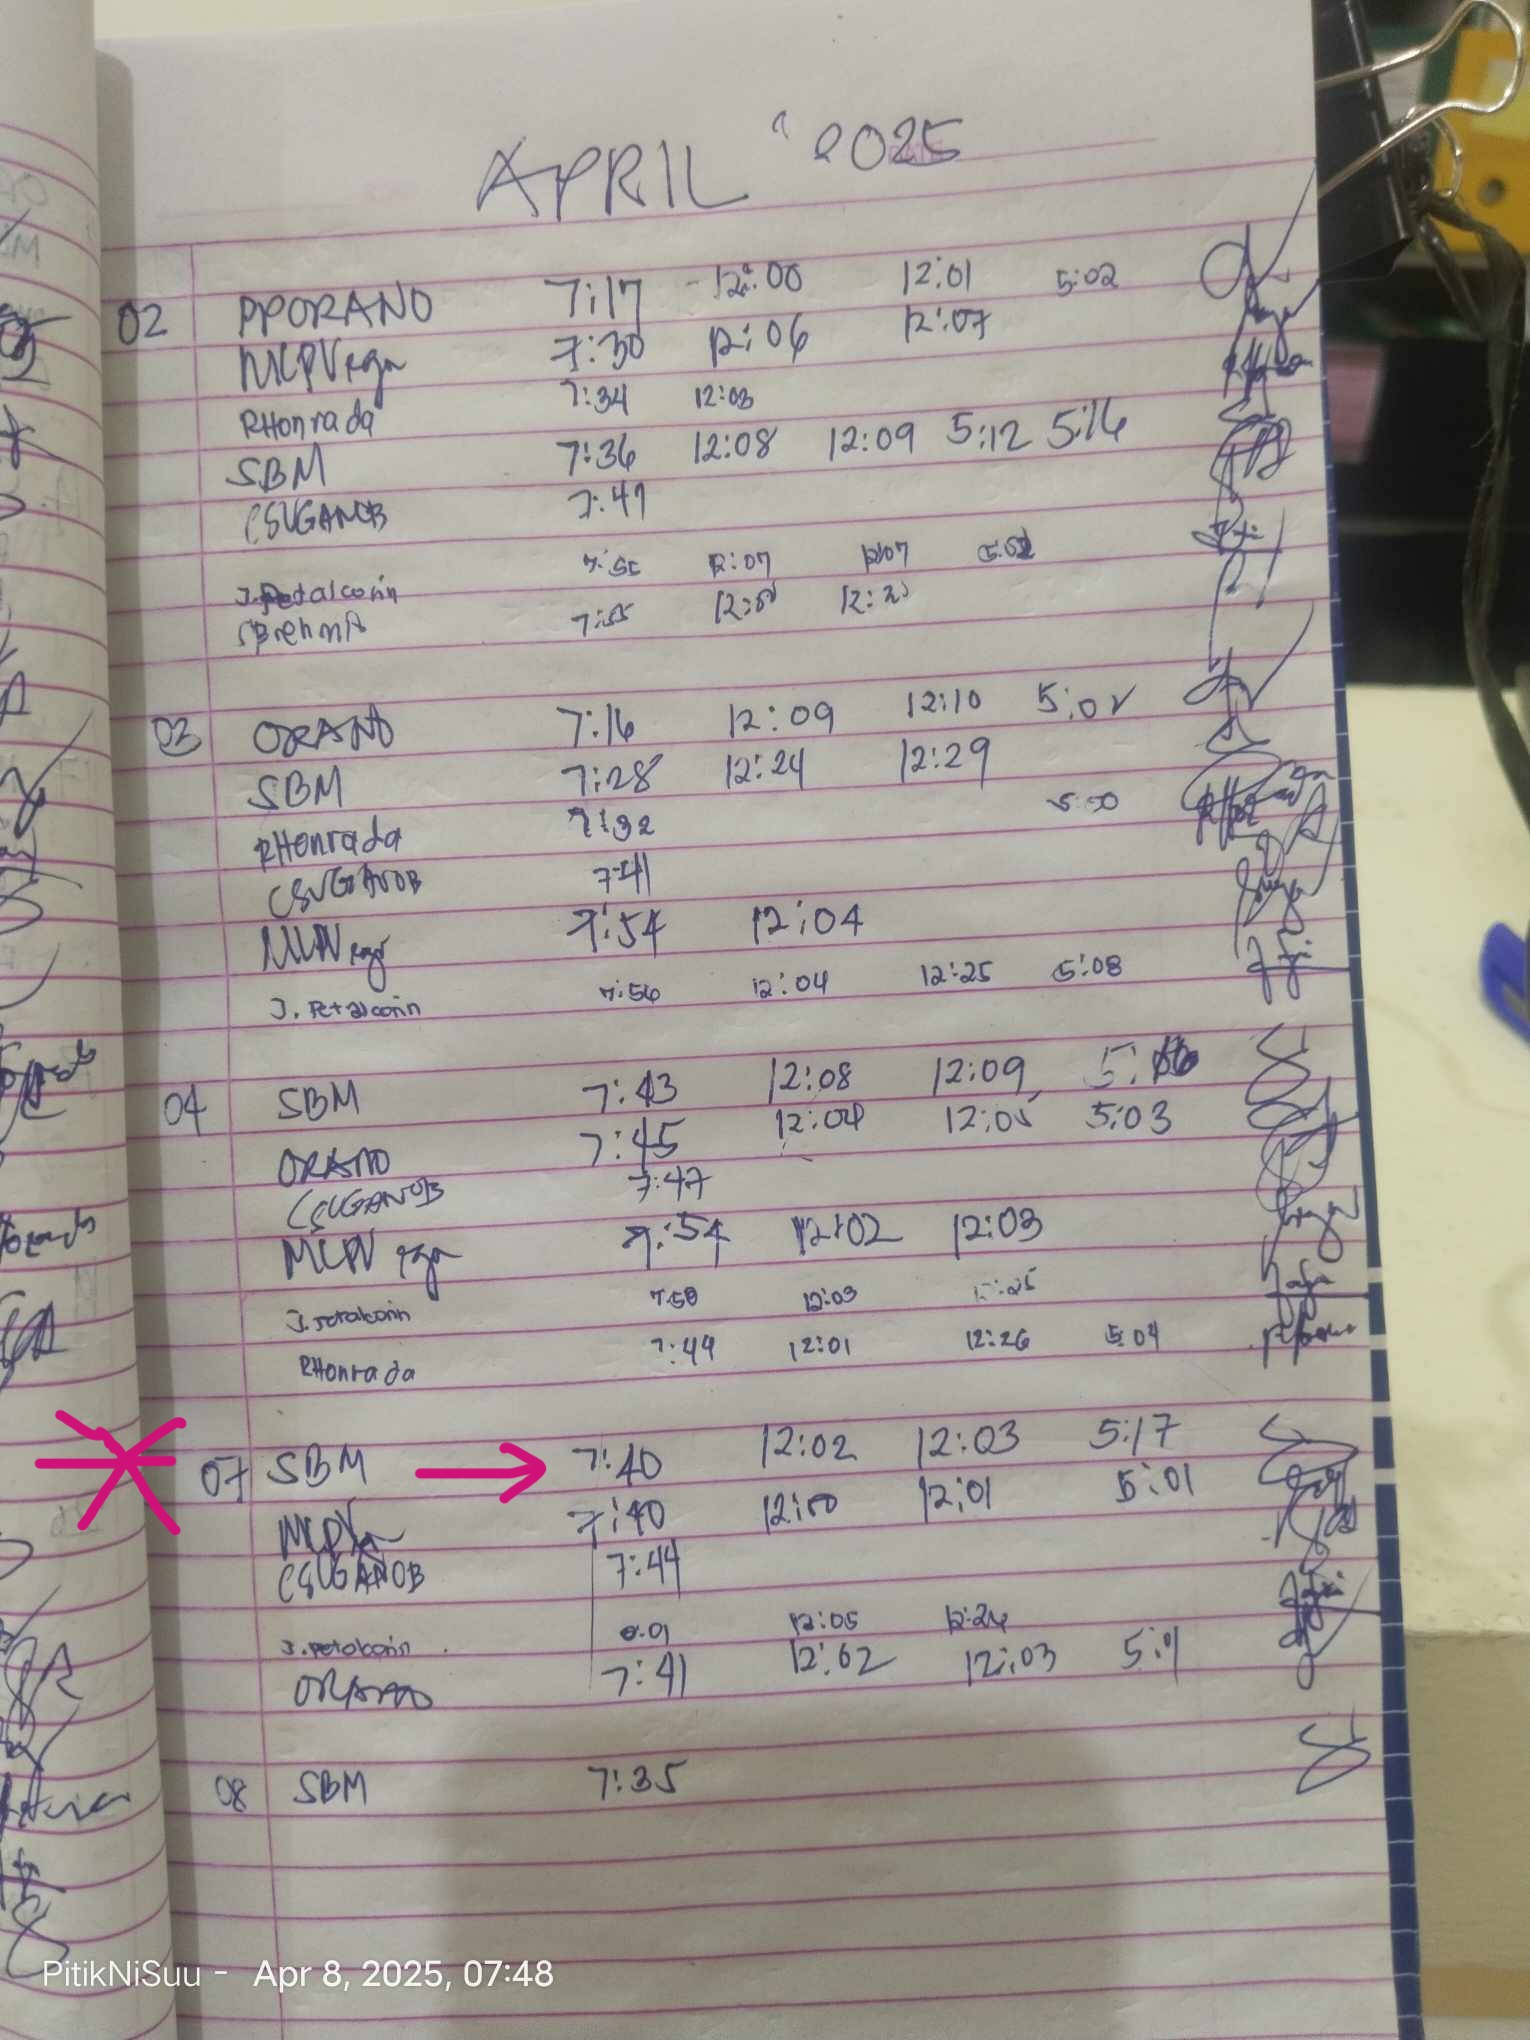 APRIL 2025
02 PPORANO 7:17 12:00 12:01 5:02
MCPVega 7:30 12:06 12:07
RHonrada 7:34 12:03
SBM 7:36 12:08 12:09 5:12 5:16
CSUGANOB 7:47
J. Petalcorin 12:07 12:07
7:55
03 ORANO 7:16 12:09 12:10 5:02
SBM 7:28 12:24 12:29
RHonrada 7:32 5:50
CSUGANOB 7:41
MCPVega 7:54 12:04
J. Petalcorin 7:56 12:04 12:25 5:08
04 SBM 7:43 12:08 12:09
ORANO 7:45 12:04 12:05 5:03
CSUGANOB 7:47
MCPVega 7:54 12:02 12:03
J. Petalcorin 7:58 12:03
RHonrada 7:49 12:01 12:26 5:04
07 SBM 7:40 12:02 12:03 5:17
7:40 12:00 12:01 5:01
CSUGANOB 7:44
J. Petalcorin 8:01 12:05 12:24
ORANO 7:41 12:02 12:03
08 SBM 7:35
PitikNiSuu - Apr 8, 2025, 07:48